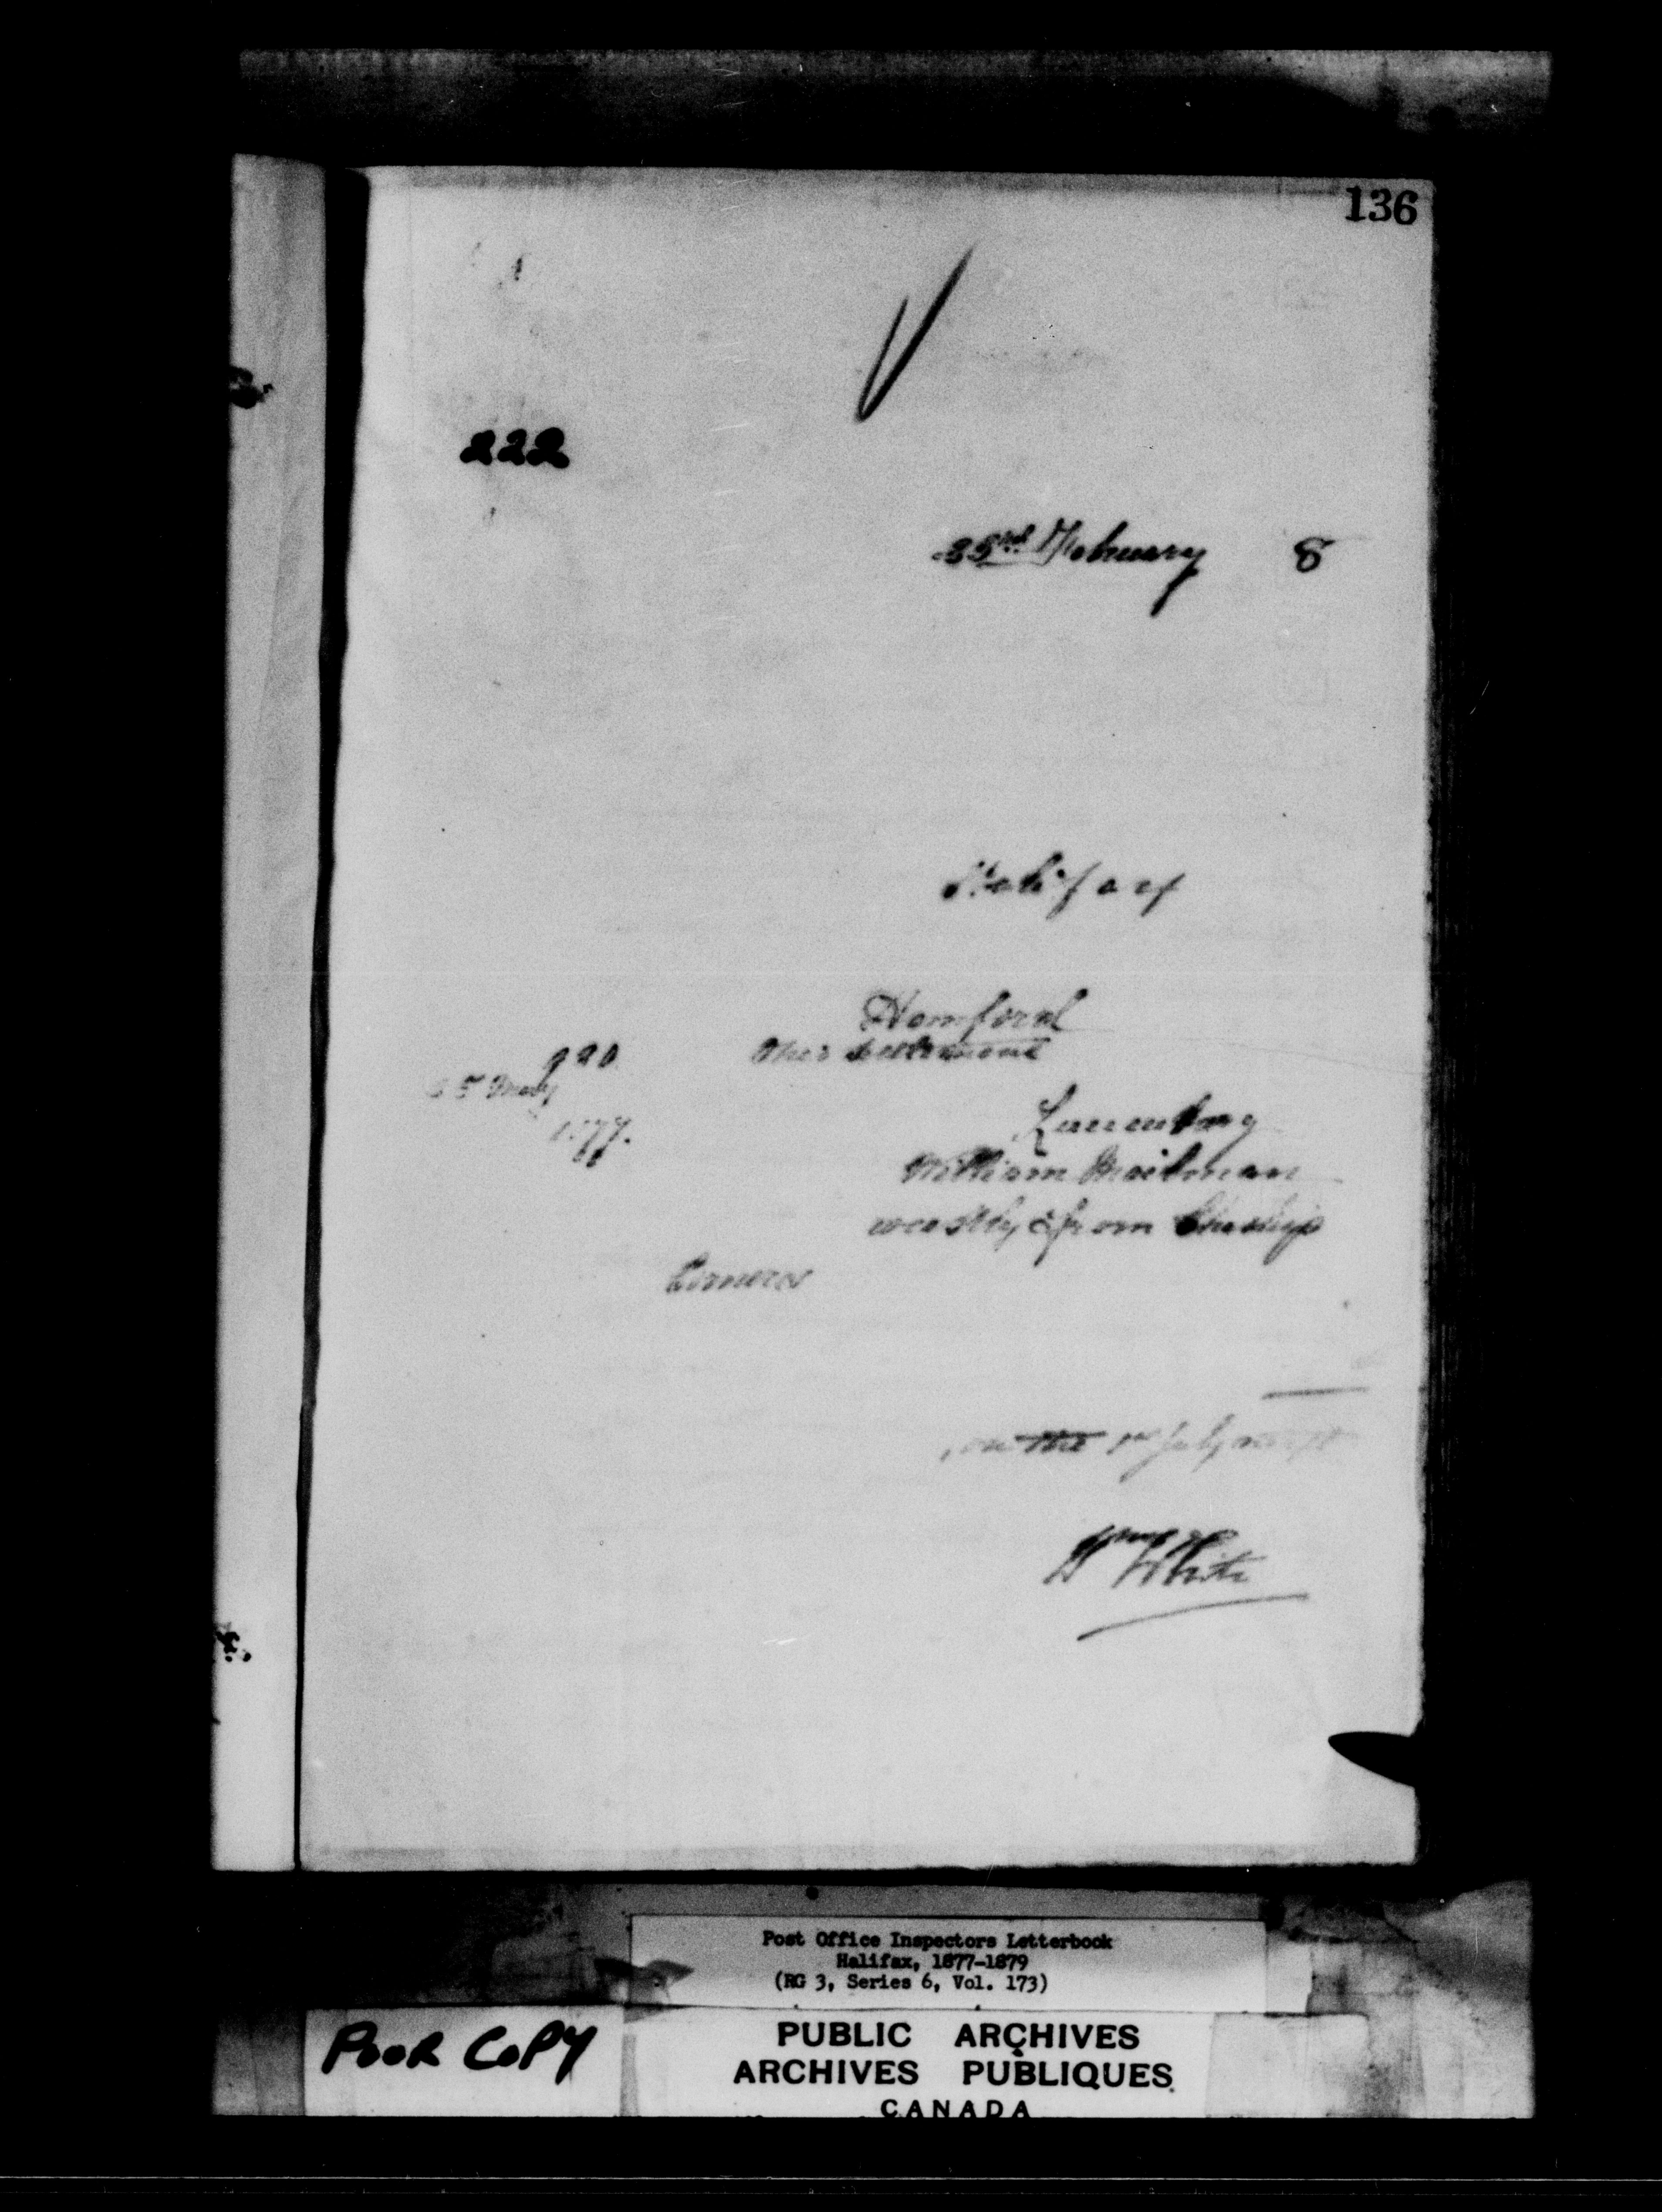 136
222
February 8
Halifax
Hemford
Ohio Settlement
920
5th May
1877.
Lunenburg
William Mailman
westly from
Corners
on the 1st July
White
Post Office Inspectors Letterbook
Halifax, 1877-1879
(RG 3, Series 6, Vol. 173)
POOR COPY
PUBLIC ARCHIVES
ARCHIVES PUBLIQUES
CANADA